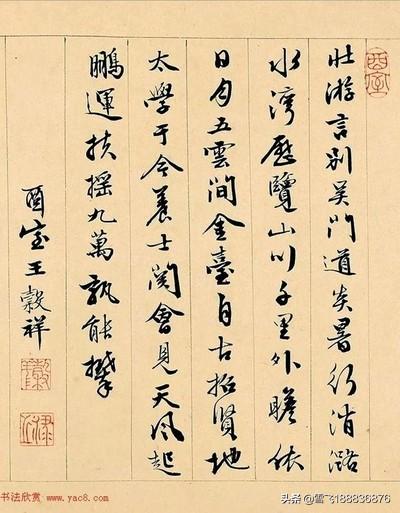 酉室
壯游言別吴門道炎暑行消潞
水灣歷覽山川千里外瞻依
日月五雲间金臺自古招賢地
太學于今養士関會見天风起
鵬運扶摇九萬孰能攀
酉室王穀祥
穀祥
祿之
书法欣赏 www.yac8.com
头条@雪飞188836876